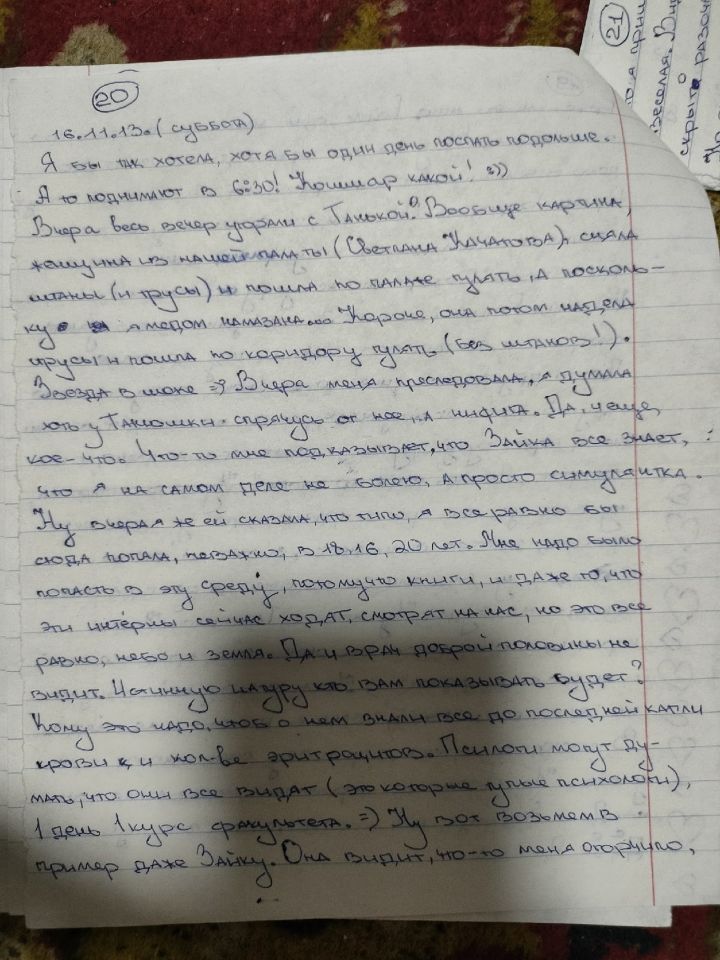 20
16.11.13. (суббота)
Я бы так хотела, хотя бы один день поспать подольше.
А то поднимают в 6:30! Кошмар какой! =))
Вчера весь вечер угорали с Танькой. Вообще картина,
женщина из нашей палаты (Светлана), сняла
штаны (и трусы) и пошла по палате гулять, а посколь-
ку я медом намазана... Короче, она потом надела
трусы и пошла по коридору гулять (без штанов!).
Звезда в шоке =) Вчера меня преследовала, я думала
хоть у Танюшки спрячусь от нее, а нифига. Да, и еще,
кое-что. Что-то мне подказывает, что Зайка все знает,
что я на самом деле не болею, а просто симулянтка.
Ну вчера я же ей сказала, что типо, я все равно бы
сюда попала, неважно, в 18, 16, 20 лет. Мне надо было
попасть в эту среду, потомучто книги, и даже то, что
эти интерны сейчас ходят, смотрят на нас, но это все
равно, небо и земля. Да и врач доброй половины не
видит. Истинную натуру кто вам показывать будет?
Кому это надо, чтоб о нем знали все до последней капли
крови и кол-ве эритроцитов. Психологи могут ду-
мать, что они все видят (это которые тупые психологи),
1 день 1 курс факультета. =) Ну вот возьмем в
пример даже Зайку. Она видит, что-то меня огорчило,
21
Веселая.
скрыто